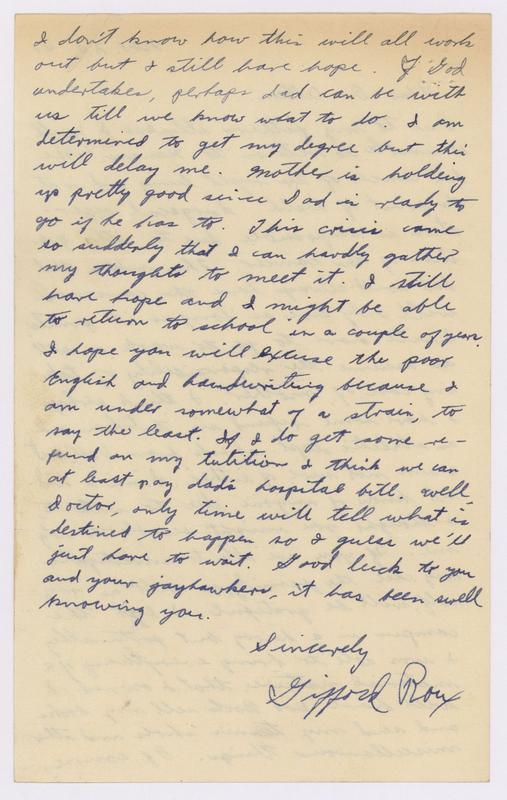 I don't know how this will all work
out but I still have hope. If God
undertakes, perhaps dad can be with
us till we know what to do. I am
determined to get my degree but this
will delay me. Mother is holding
up pretty good since Dad is ready to
go if he has to. This crisis came
so suddenly that I can hardly gather
my thoughts to meet it. I still
have hope and I might be able
to return to school in a couple of years.
I hope you will excuse the poor
English and handwriting because I
am under somewhat of a strain, to
say the least. If I do get some re-
fund on my tutition I think we can
at least pay dad's hospital bill. Well,
Doctor, only time will tell what is
destined to happen so I guess we'll
just have to wait. Good luck to you
and your jayhawkers, it has been swell
knowing you.
Sincerely
Gifford Roux